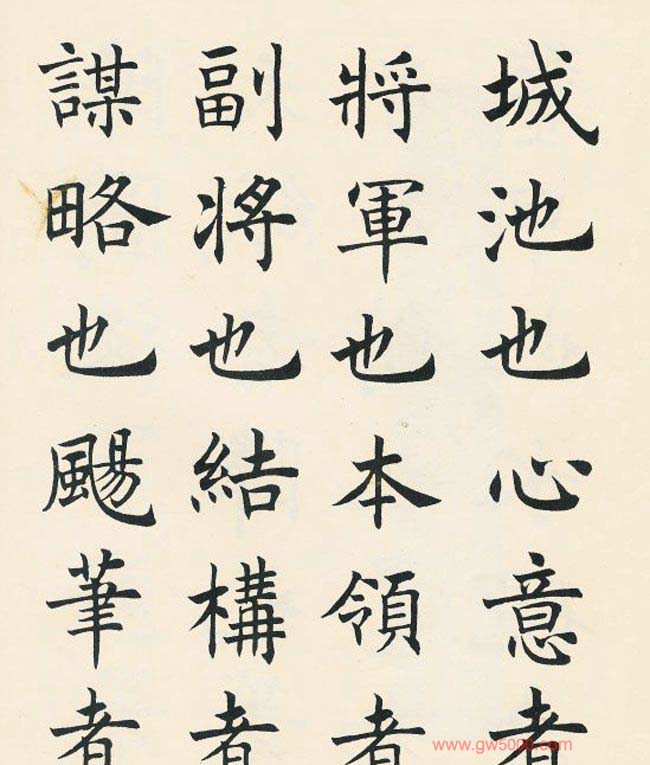 城池也心意者
將軍也本領者
副將也結構者
謀略也颺筆者
www.gw5000.com